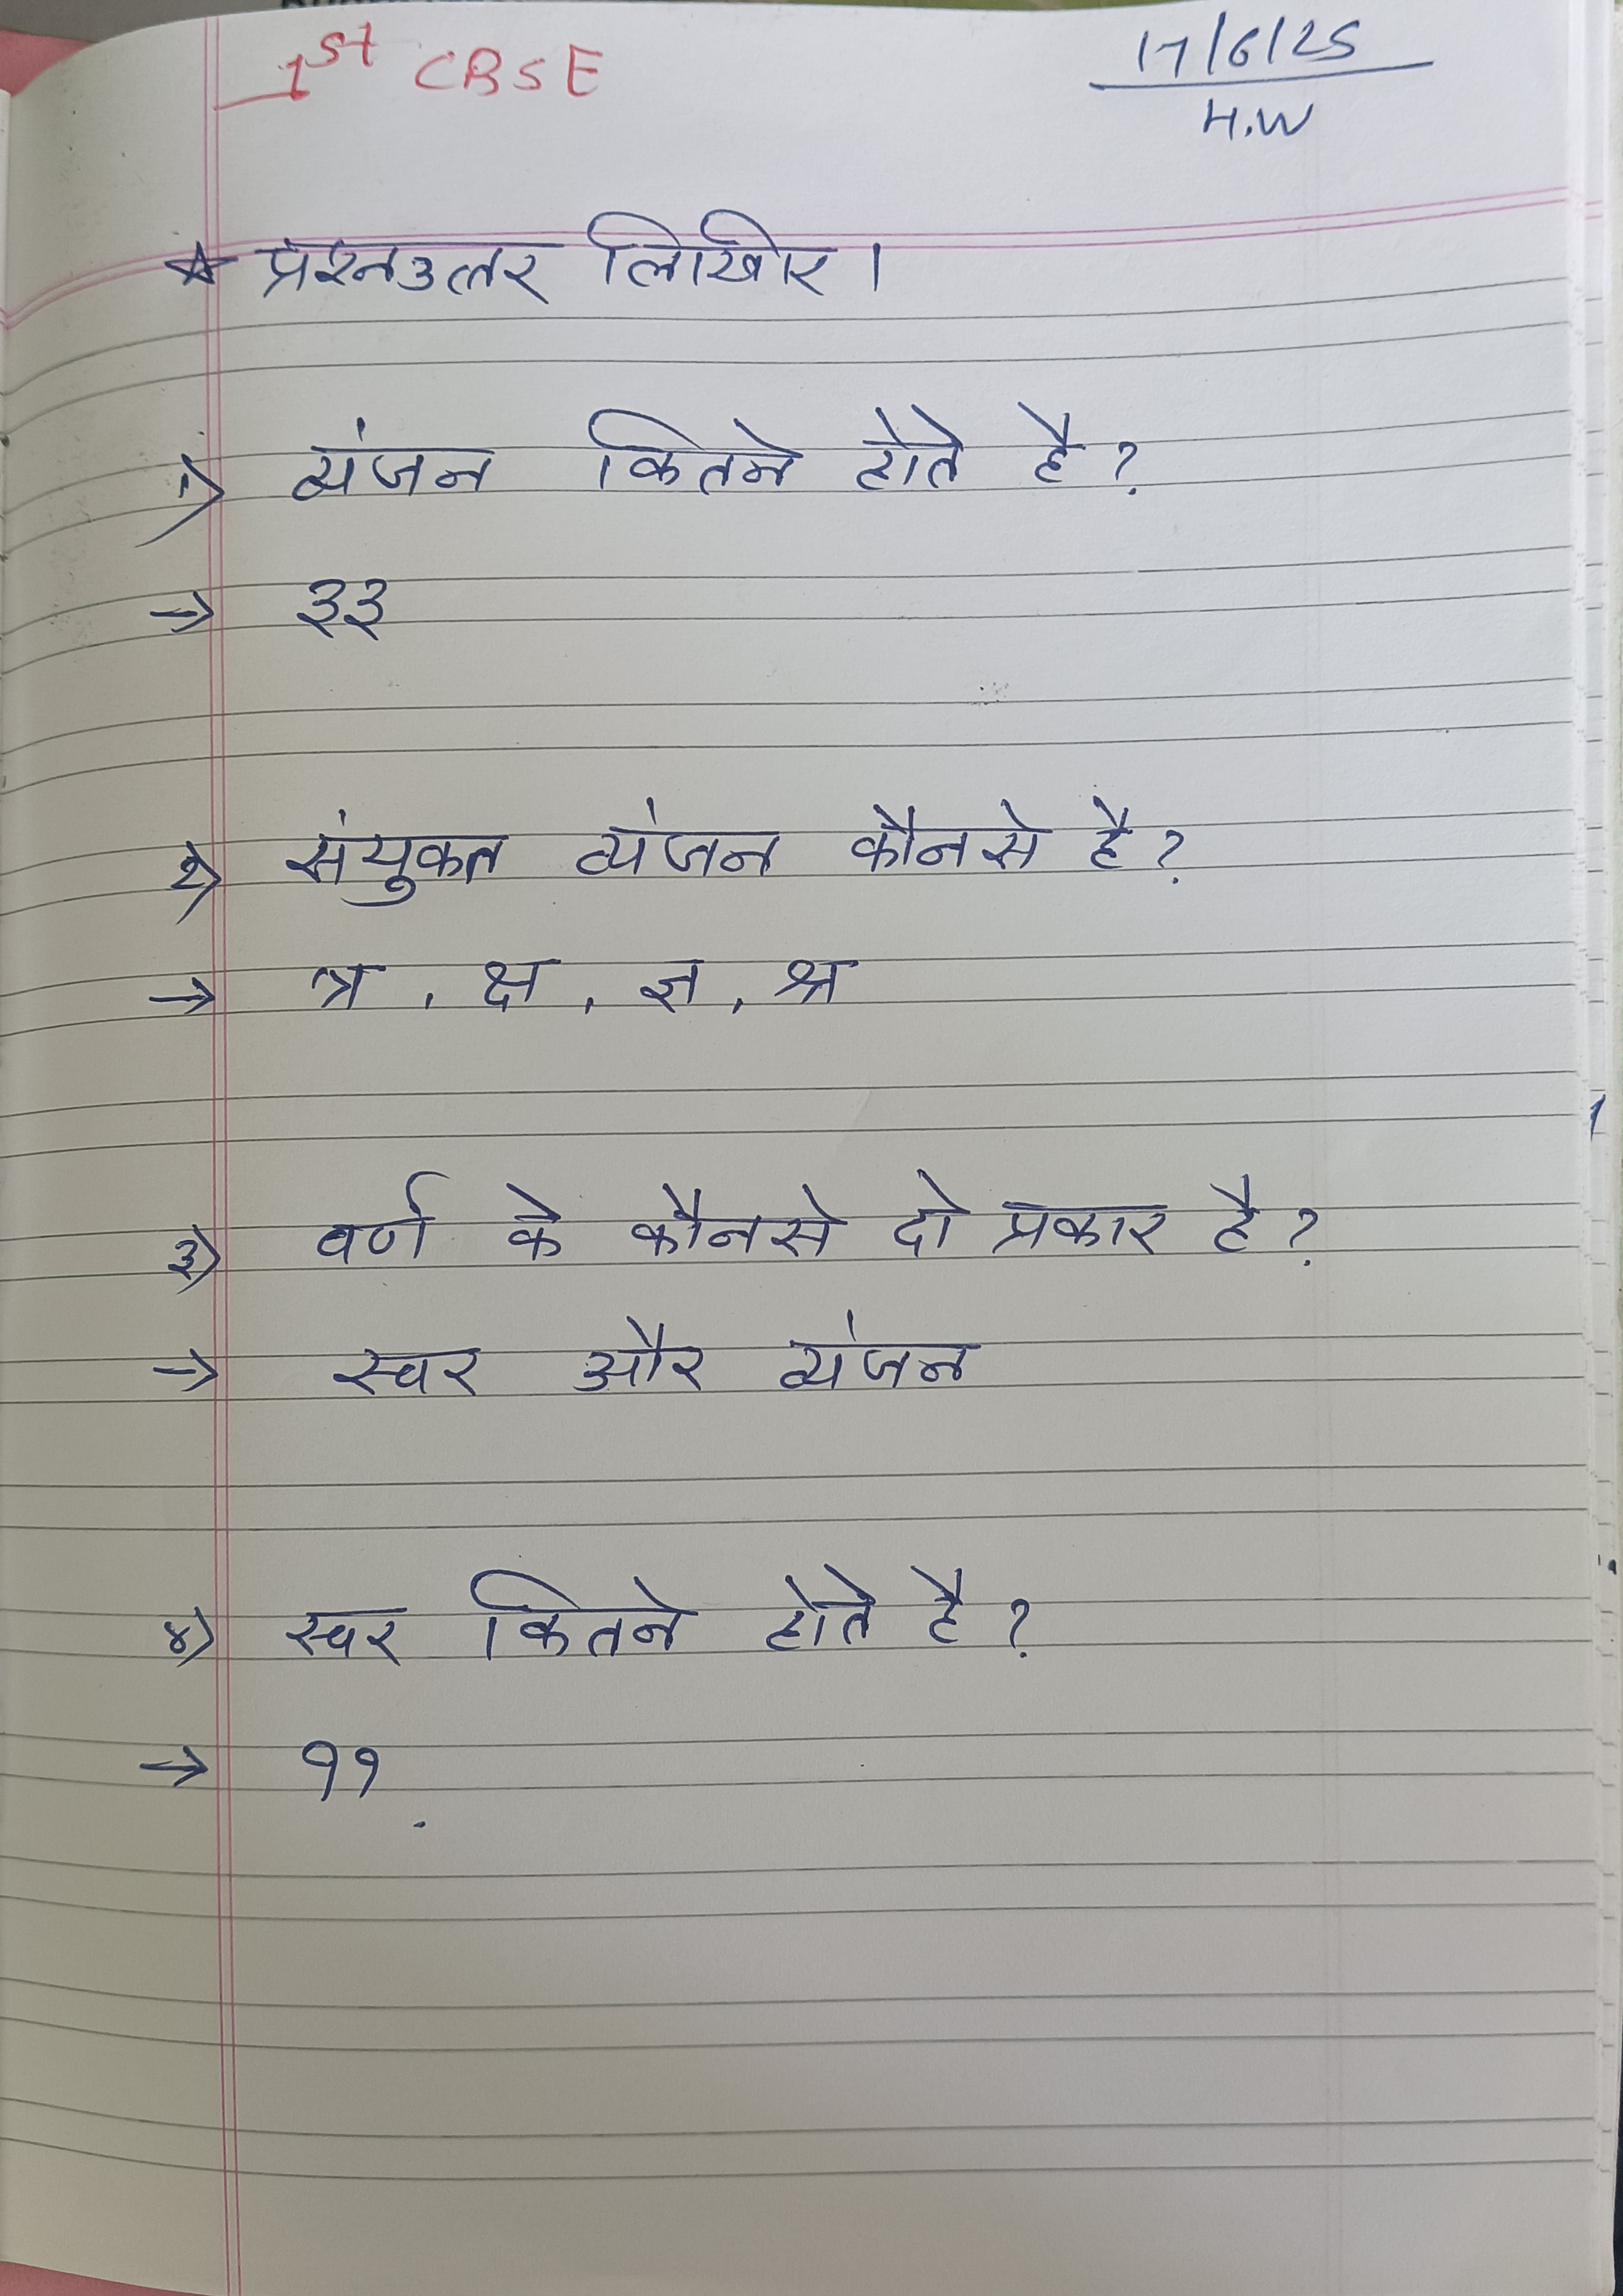 1st CBSE
17/6/25
H.W
☆ प्रश्नउत्तर लिखिए।
१) व्यंजन कितने होते है?
→ ३३
२) संयुक्त व्यंजन कौनसे है?
→ त्र, क्ष, ज्ञ, श्र
३) वर्ण के कौनसे दो प्रकार है?
→ स्वर और व्यंजन
४) स्वर कितने होते है?
→ ११.